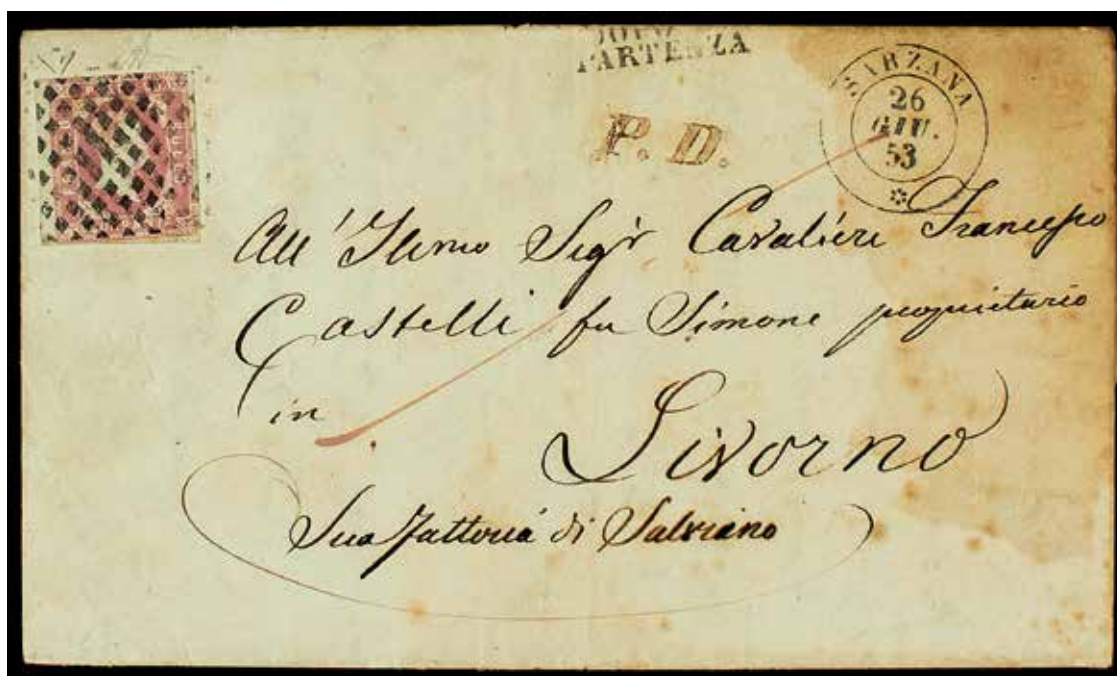 PARTENZA
P. D.
SARZANA
26
GIU.
53
All' Illmo Sigr Cavaliere Francesco
Castelli fu Simone proprietario
in
Livorno
Sua fattoria di Salviano